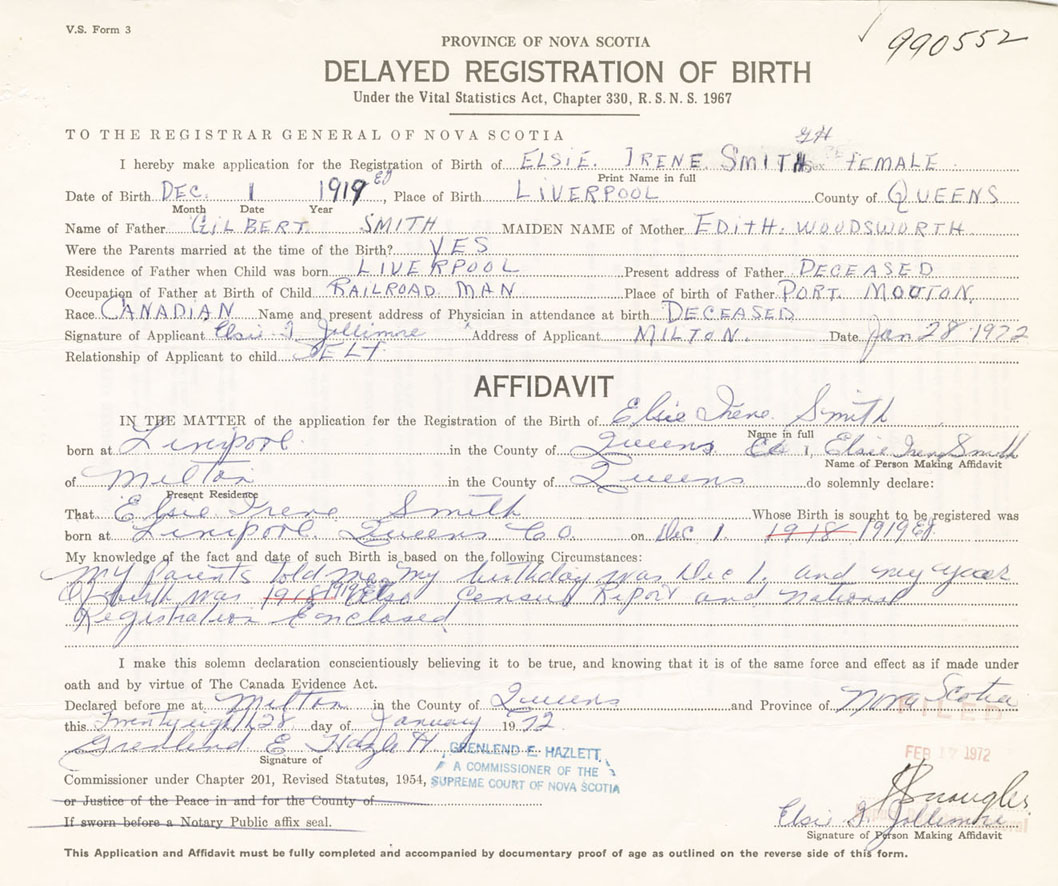 V.S. Form 3
990552
PROVINCE OF NOVA SCOTIA
DELAYED REGISTRATION OF BIRTH
Under the Vital Statistics Act, Chapter 330, R. S. N. S. 1967
TO THE REGISTRAR GENERAL OF NOVA SCOTIA
I hereby make application for the Registration of Birth of ELSIE. IRENE SMITH Sex FEMALE
Print Name in full
Date of Birth DEC. 1 1919 EJ, Place of Birth LIVERPOOL County of QUEENS
Month Date Year
Name of Father GILBERT SMITH MAIDEN NAME of Mother EDITH. WOODSWORTH
Were the Parents married at the time of the Birth? YES
Residence of Father when Child was born LIVERPOOL Present address of Father DECEASED
Occupation of Father at Birth of Child RAILROAD MAN Place of birth of Father PORT. MOUTON.
Race CANADIAN Name and present address of Physician in attendance at birth DECEASED
Signature of Applicant Elsie I Jollimore Address of Applicant MILTON. Date Jan 28 1972
Relationship of Applicant to child SELF
AFFIDAVIT
IN THE MATTER of the application for the Registration of the Birth of Elsie Irene Smith
Name in full
born at Liverpool in the County of Queens Co I, Elsie Irene Smith
Name of Person Making Affidavit
of Milton in the County of Queens do solemnly declare:
Present Residence
That Elsie Irene Smith Whose Birth is sought to be registered was
born at Liverpool. Queens C.O. on Dec 1. 1918 1919 EJ.
My knowledge of the fact and date of such Birth is based on the following Circumstances:
My Parents told me my birthday was Dec 1. and my year
Of birth was 1918 1919 EJ Also Census Report and National
Registration Enclosed
I make this solemn declaration conscientiously believing it to be true, and knowing that it is of the same force and effect as if made under
oath and by virtue of The Canada Evidence Act.
Declared before me at Milton in the County of Queens and Province of Nova Scotia
this Twentyeight 28 day of January 1972
FILED
Grenlend E Hazlett
GRENLEND E. HAZLETT,
A COMMISSIONER OF THE
SUPREME COURT OF NOVA SCOTIA
FEB 17 1972
Signature of
Commissioner under Chapter 201, Revised Statutes, 1954,
or Justice of the Peace in and for the County of
If sworn before a Notary Public affix seal.
Elsie I. Jollimore
Signature of Person Making Affidavit
This Application and Affidavit must be fully completed and accompanied by documentary proof of age as outlined on the reverse side of this form.